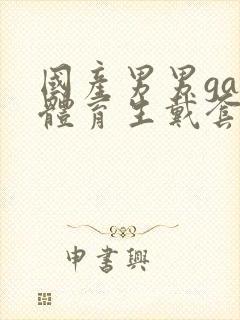 國產男男ga
體育生戴套
申書興